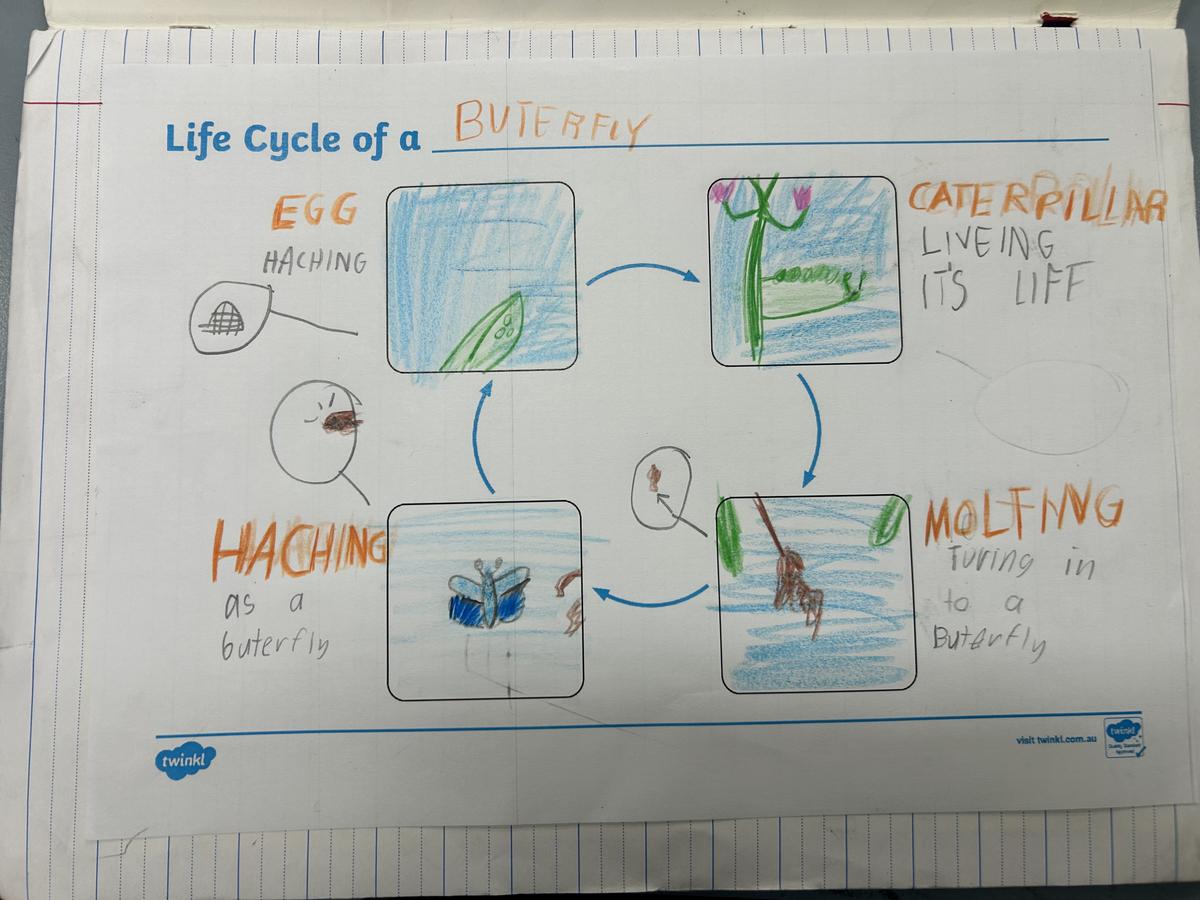 Life Cycle of a BUTERFLY
EGG
HACHING
CATERPILLAR
LIVEING
IT'S LIFF
HACHING
as a
buterfly
MOLTING
Turing in
to a
Buterfly
twinkl
visit twinkl.com.au
twinkl
Quality Standard
Approved